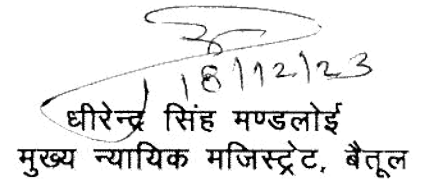 18/12/23
धीरेन्द्र सिंह मण्डलोई
मुख्य न्यायिक मजिस्ट्रेट, बैतूल